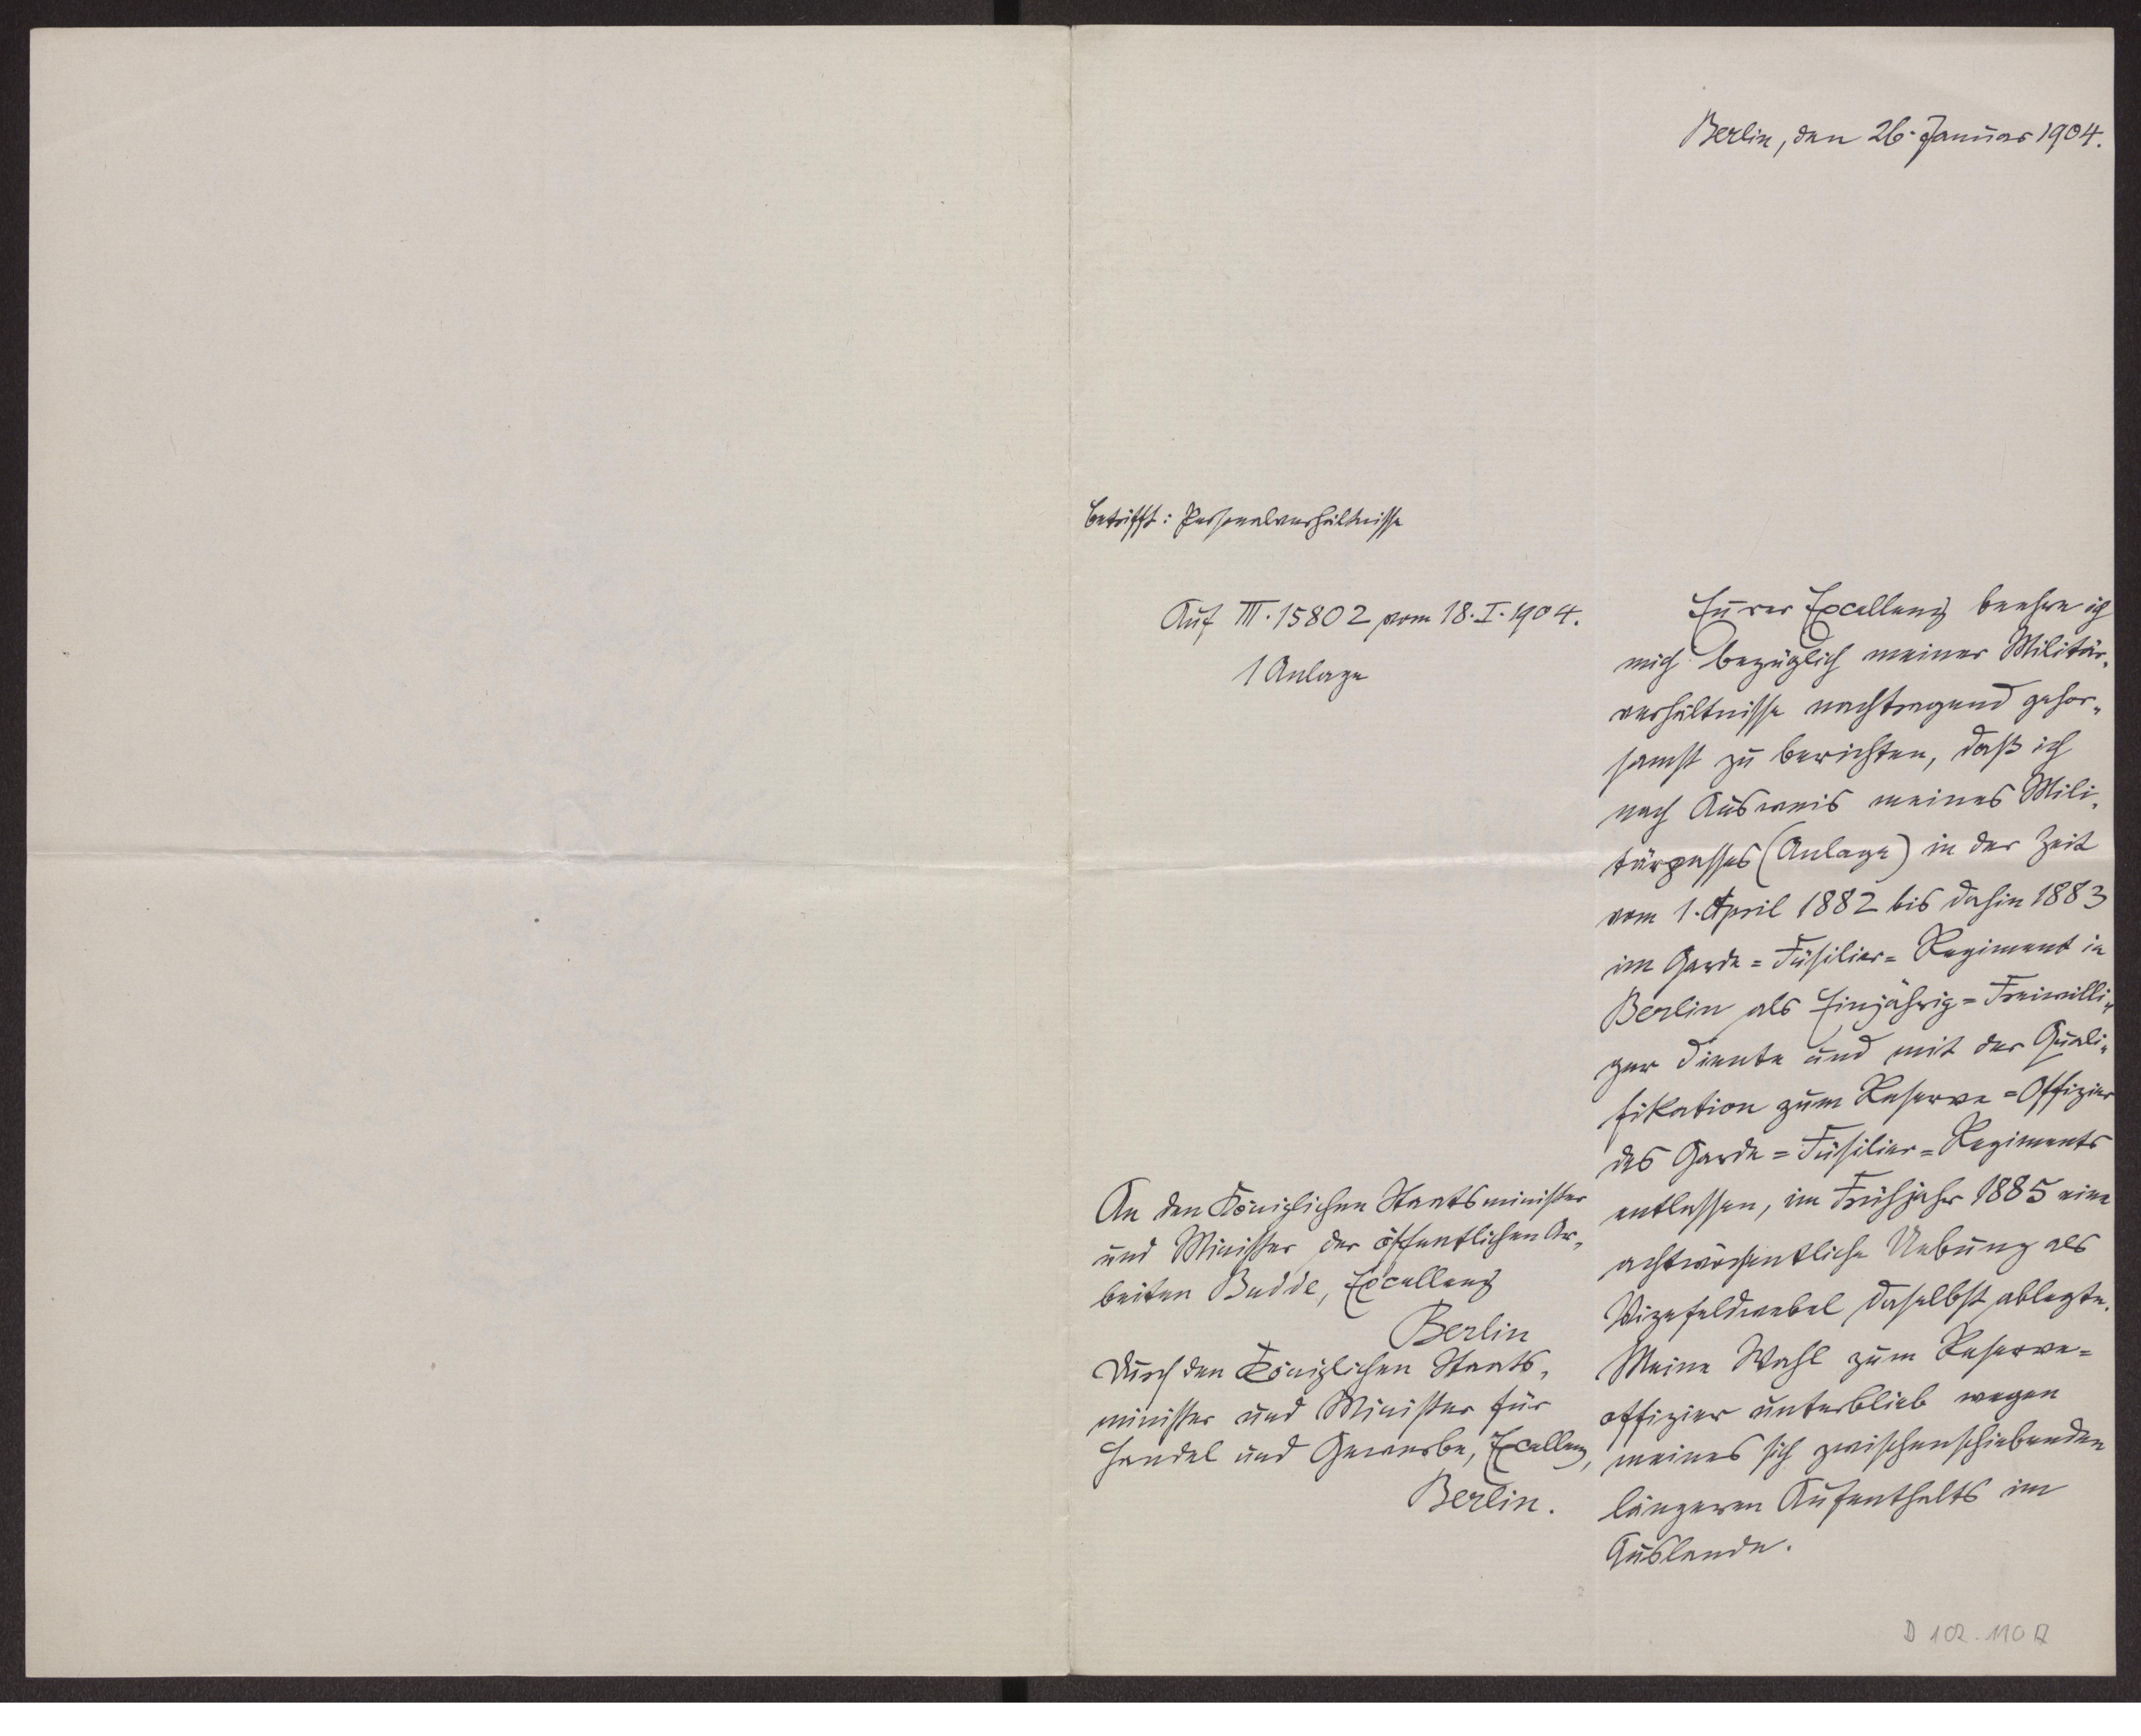 Berlin, den 26. Januar 1904.
betrifft: Personalverhältnisse
Auf III. 15802 vom 18. I. 1904.
1 Anlage
An den Königlichen Staatsminister
und Minister der öffentlichen Ar-
beiten Budde, Excellenz
Berlin
durch den Königlichen Staats-
minister und Minister für
Handel und Gewerbe, Excellenz,
Berlin.
Eurer Excellenz beehre ich
mich bezüglich meiner Militär-
verhältnisse nachtragend gehor-
samst zu berichten, daß ich
nach Ausweis meines Mili-
tärpasses (Anlage) in der Zeit
vom 1. April 1882 bis dahin 1883
im Garde=Füsilier=Regiment in
Berlin als Einjährig=Freiwilli-
ger diente und mit der Quali-
fikation zum Reserve=Offizier
des Garde=Füsilier=Regiments
entlassen, im Frühjahr 1885 eine
achtwöchentliche Uebung als
Vizefeldwebel daselbst ablegte.
Meine Wahl zum Reserve=
offizier unterblieb wegen
meines sich zwischenschiebenden
längeren Aufenthalts im
Auslande.